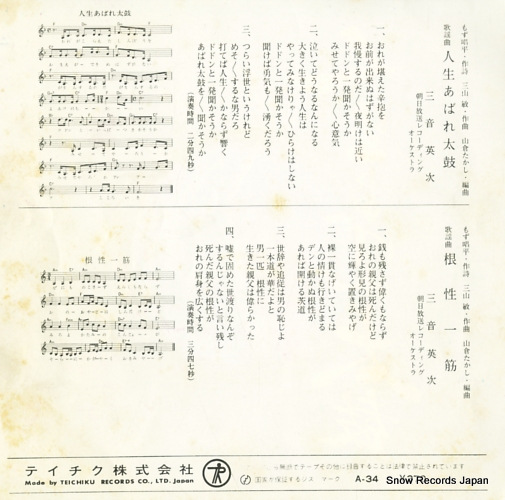 もず唱平・作詩 三山敏・作曲 山倉たかし・編曲
歌謡曲 人生あばれ太鼓
三音英次
朝日放送レコーディング
オーケストラ
一、おれが堪えた辛抱を
お前が出来ぬはずがない
我慢するのだ〱夜明けは近い
ドドンと一発聞かそうか
みせてやろうか〱心意気
二、泣いてどうなるなんになる
大きく生きよう人生は
やってみなけりゃ〱ひらけはしない
ドドンと一発聞かそうか
聞けば勇気も〱湧くだろう
三、つらい浮世というけれど
めそ〱するな男だろ
打てば人生〱かならず響く
ドドンと一発聞かそうか
あばれ太鼓を〱聞かそうか
(演奏時間 二分四九秒)
人生あばれ太鼓
もず唱平・作詩 三山敏・作曲 山倉たかし・編曲
歌謡曲 根性一筋
三音英次
朝日放送レコーディング
オーケストラ
一、銭も残さず偉くもならず
おれの親父は死んだけど
見ろよ形見の根性が
空に輝やく置きみやげ
二、裸一貫なげいていては
人の情けも行きどまる
デンと動かぬ根性が
あれば開ける茨道
三、世辞や追従は男の恥じよ
一本道が華だよと
男一匹 根性に
生きた親父は偉らかった
四、嘘で固めた世渡りなんぞ
するんじゃないと言い残し
死んだ親父の根性が
おれの肩身を広くする
(演奏時間 三分四七秒)
根性一筋
テイチク株式会社
Made by TEICHIKU RECORDS CO., LTD. Japan
無断でテープその他に録音することは法律で禁止されています
国家が保証するジスマーク
A-34
Snow Records Japan